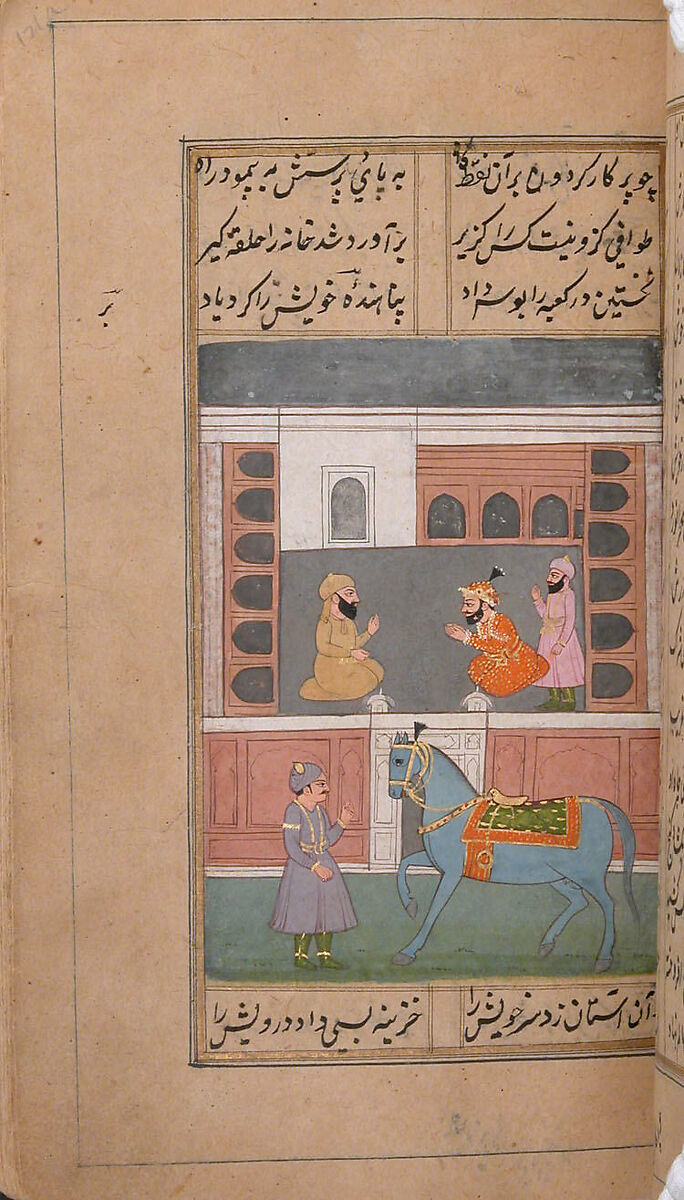 چو پرکار گردون بر آن نقطه گاه به پای پرستش به پیمود راه
طوافی کزو نیست کس را گزیر بر آورد شد خانه را حلقه گیر
نخستین در کعبه را بوسه داد پناهندهٔ خویش را کرد یاد
بر
آن آستان زد سر خویش را خزینه بسی داد درویش را